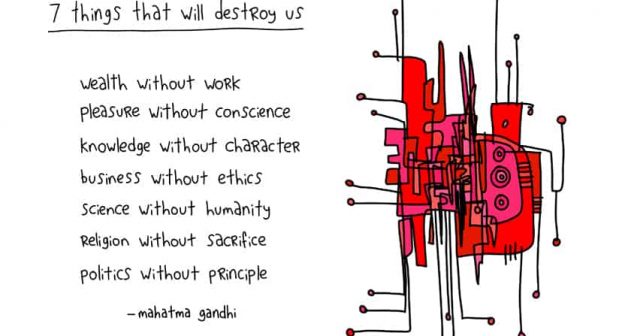 7 things that will destroy us
wealth without work
pleasure without conscience
knowledge without character
business without ethics
science without humanity
religion without sacrifice
politics without principle
–mahatma gandhi